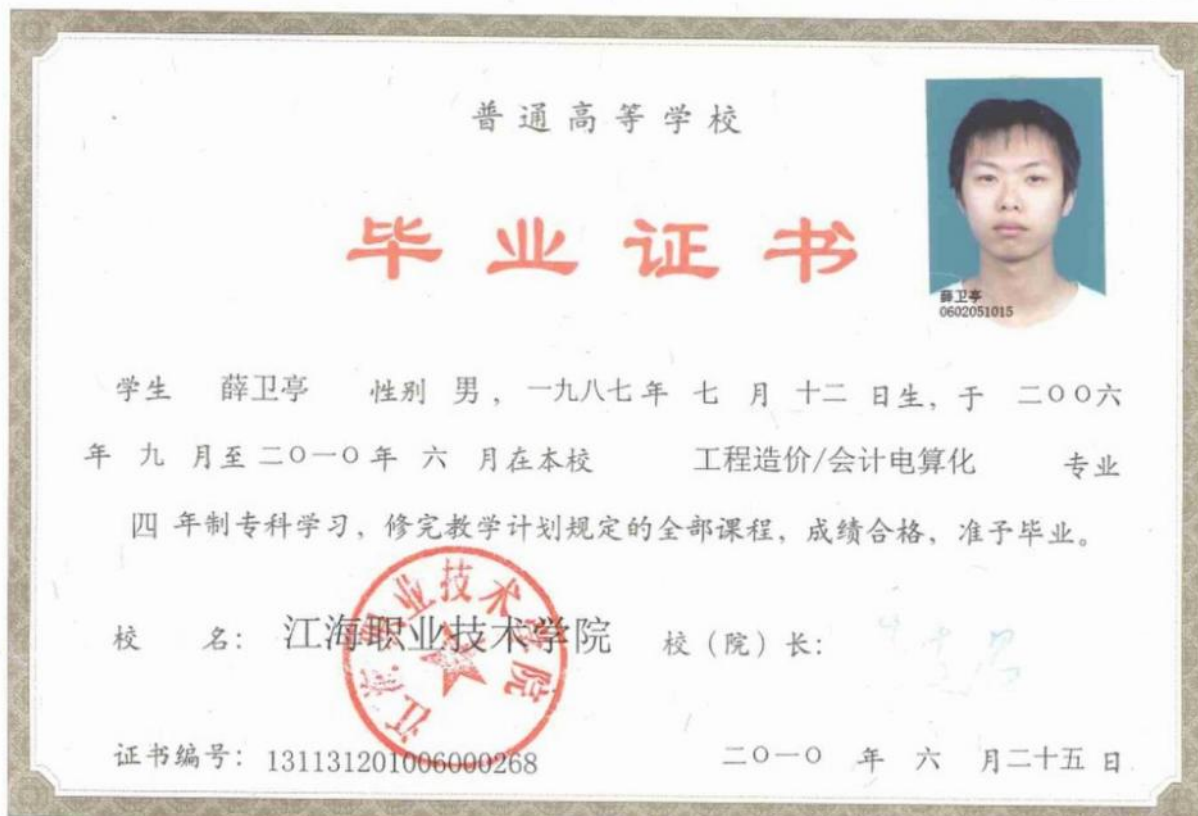 普通高等学校
毕业证书
薛卫亭
0602051015
学生 薛卫亭 性别 男，一九八七年 七 月 十二 日生，于 二〇〇六
年 九 月至二〇一〇年 六 月在本校 工程造价/会计电算化 专业
四 年制专科学习，修完教学计划规定的全部课程，成绩合格，准予毕业。
江海职业技术学院
校 名：江海职业技术学院 校（院）长：
证书编号：131131201006000268 二〇一〇 年 六 月二十五日